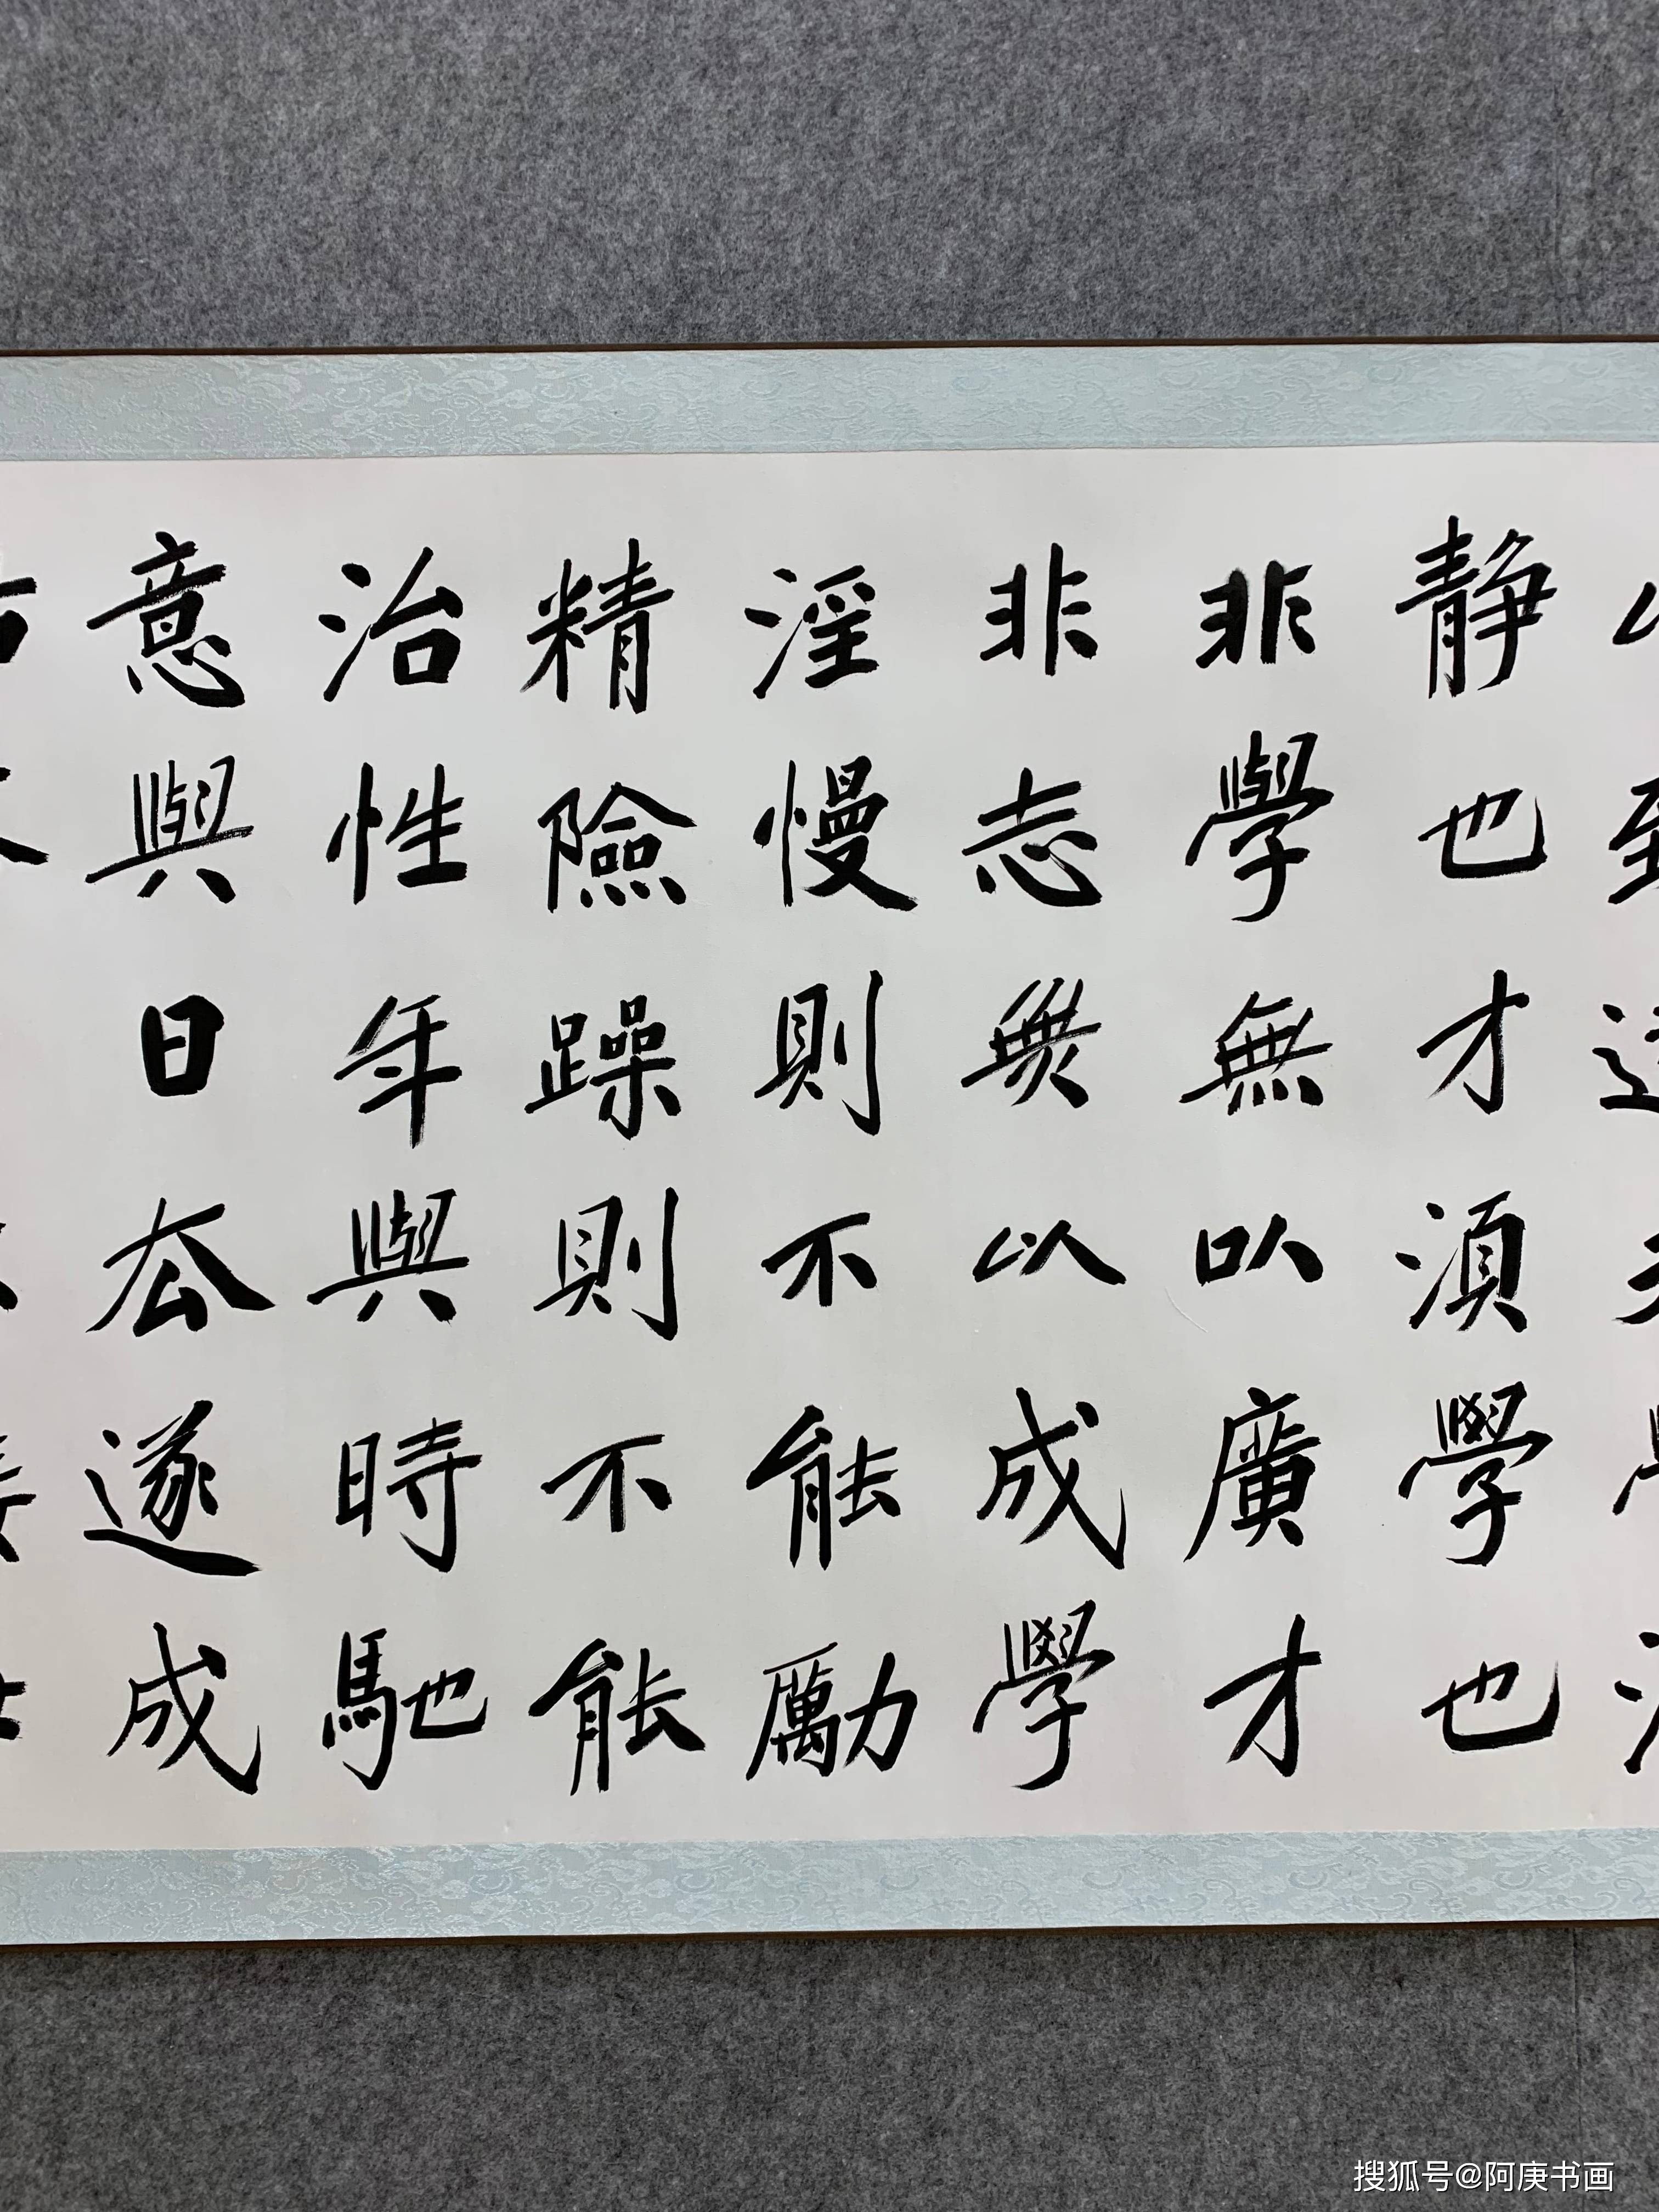 靜也才須學也
非學無以廣才
非志無以成學
淫慢則不能勵
精險躁則不能
治性年與時馳
意與日去遂成
搜狐号@阿庚书画